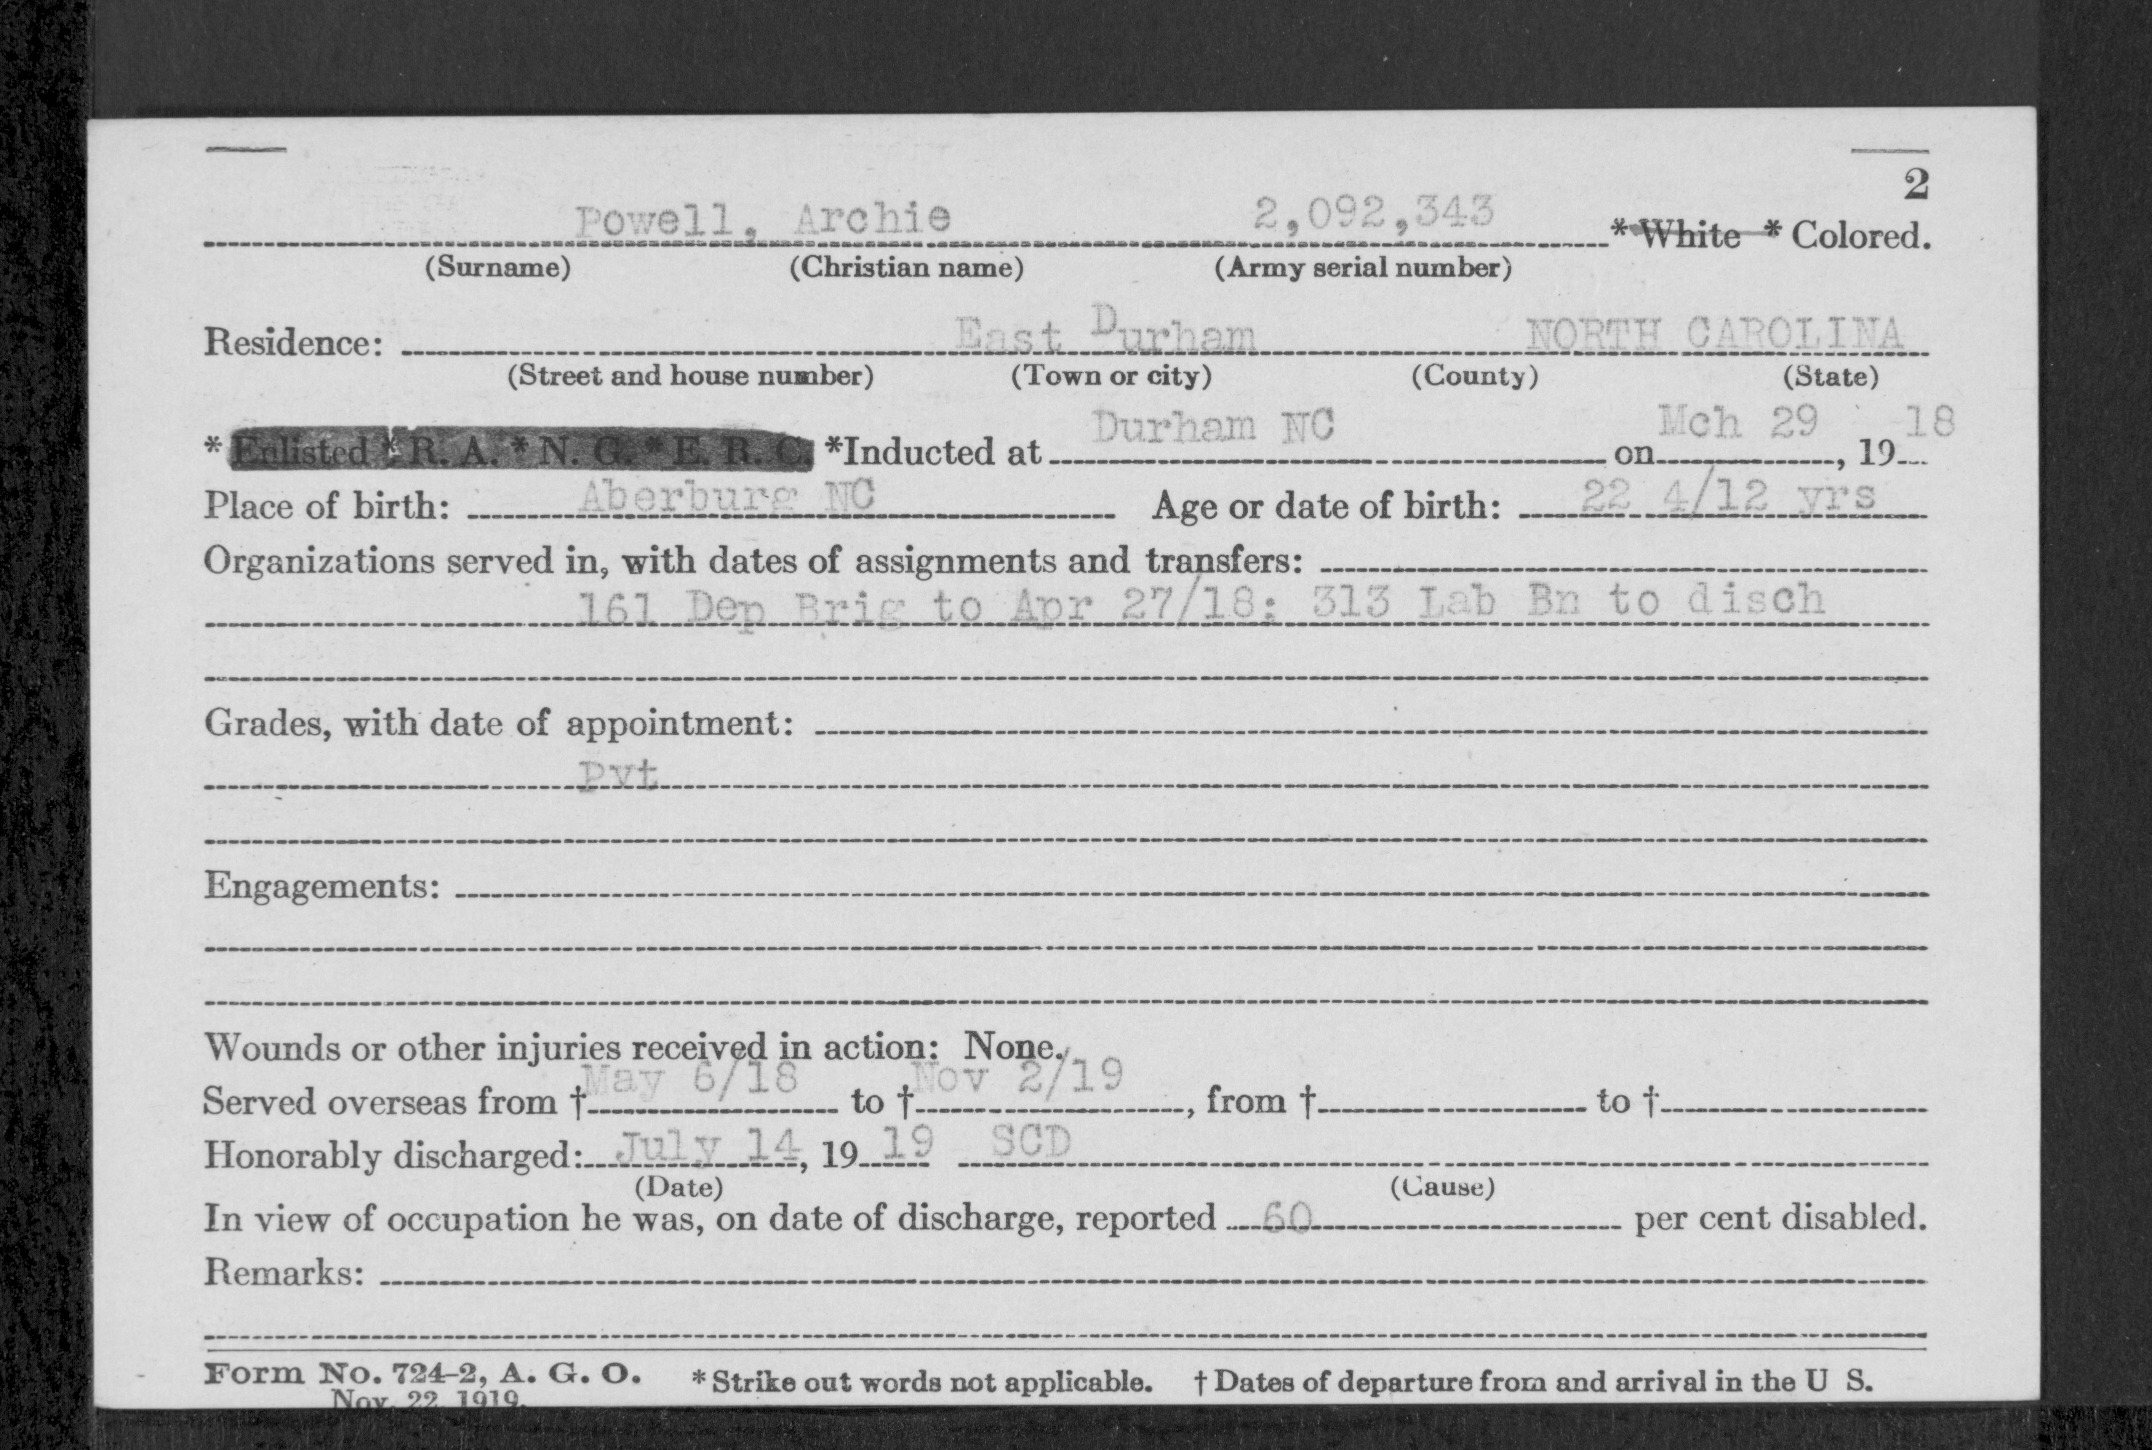 2
Powell, Archie 2,092,343 * White * Colored.
(Surname) (Christian name) (Army serial number)
Residence: East Durham NORTH CAROLINA
(Street and house number) (Town or city) (County) (State)
* Enlisted * R. A. * N. G. * E. R. C. *Inducted at Durham NC on Mch 29, 1918
Place of birth: Aberburg NC Age or date of birth: 22 4/12 yrs
Organizations served in, with dates of assignments and transfers:
161 Dep Brig to Apr 27/18: 313 Lab Bn to disch
Grades, with date of appointment:
Pvt
Engagements:
Wounds or other injuries received in action: None.
Served overseas from † May 6/18 to † Nov 2/19, from † to †
Honorably discharged: July 14, 19 19 SCD
(Date) (Cause)
In view of occupation he was, on date of discharge, reported 60 per cent disabled.
Remarks:
Form No. 724-2, A. G. O. * Strike out words not applicable. † Dates of departure from and arrival in the U S.
Nov. 22, 1919.